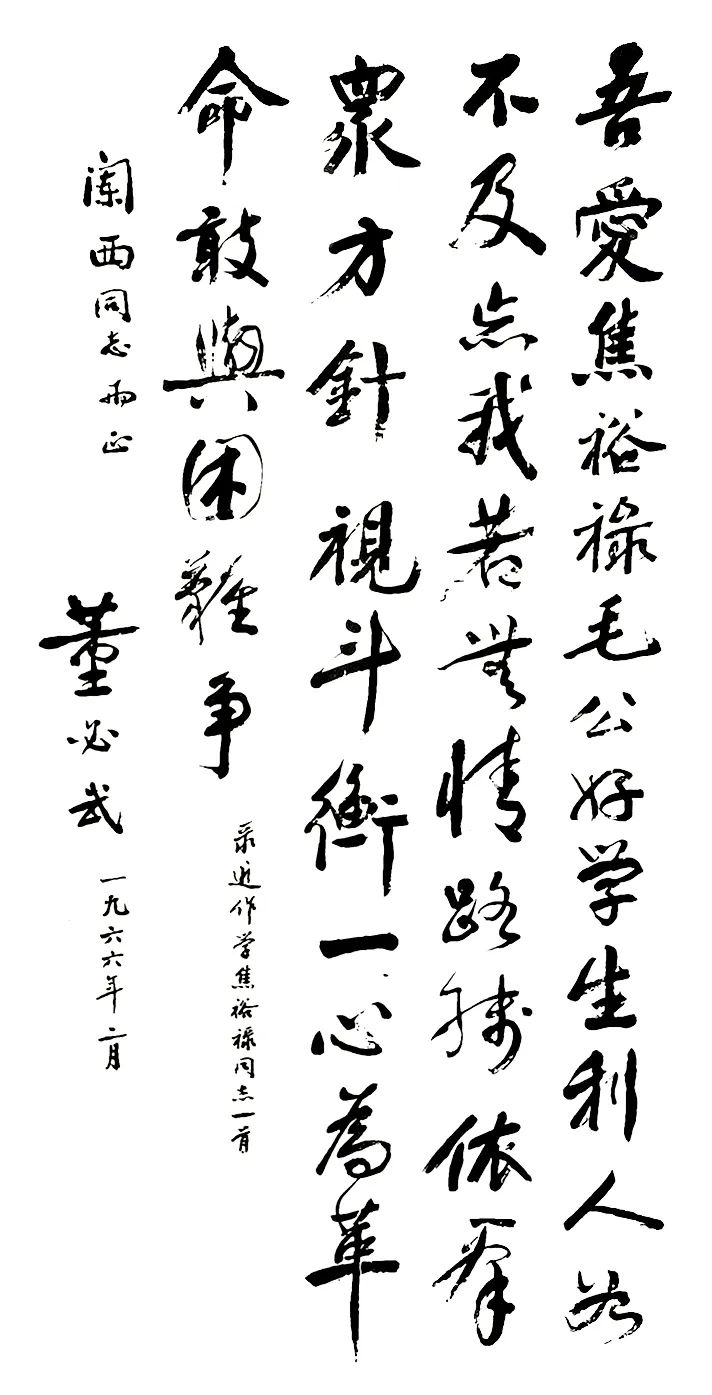 吾愛焦裕禄毛公好学生利人如
不及忘我若無情路线依羣
眾方針視斗衡一心為革
命敢與困難争
录近作学焦裕禄同志一首
阑西同志雨正
董必武
一九六六年二月